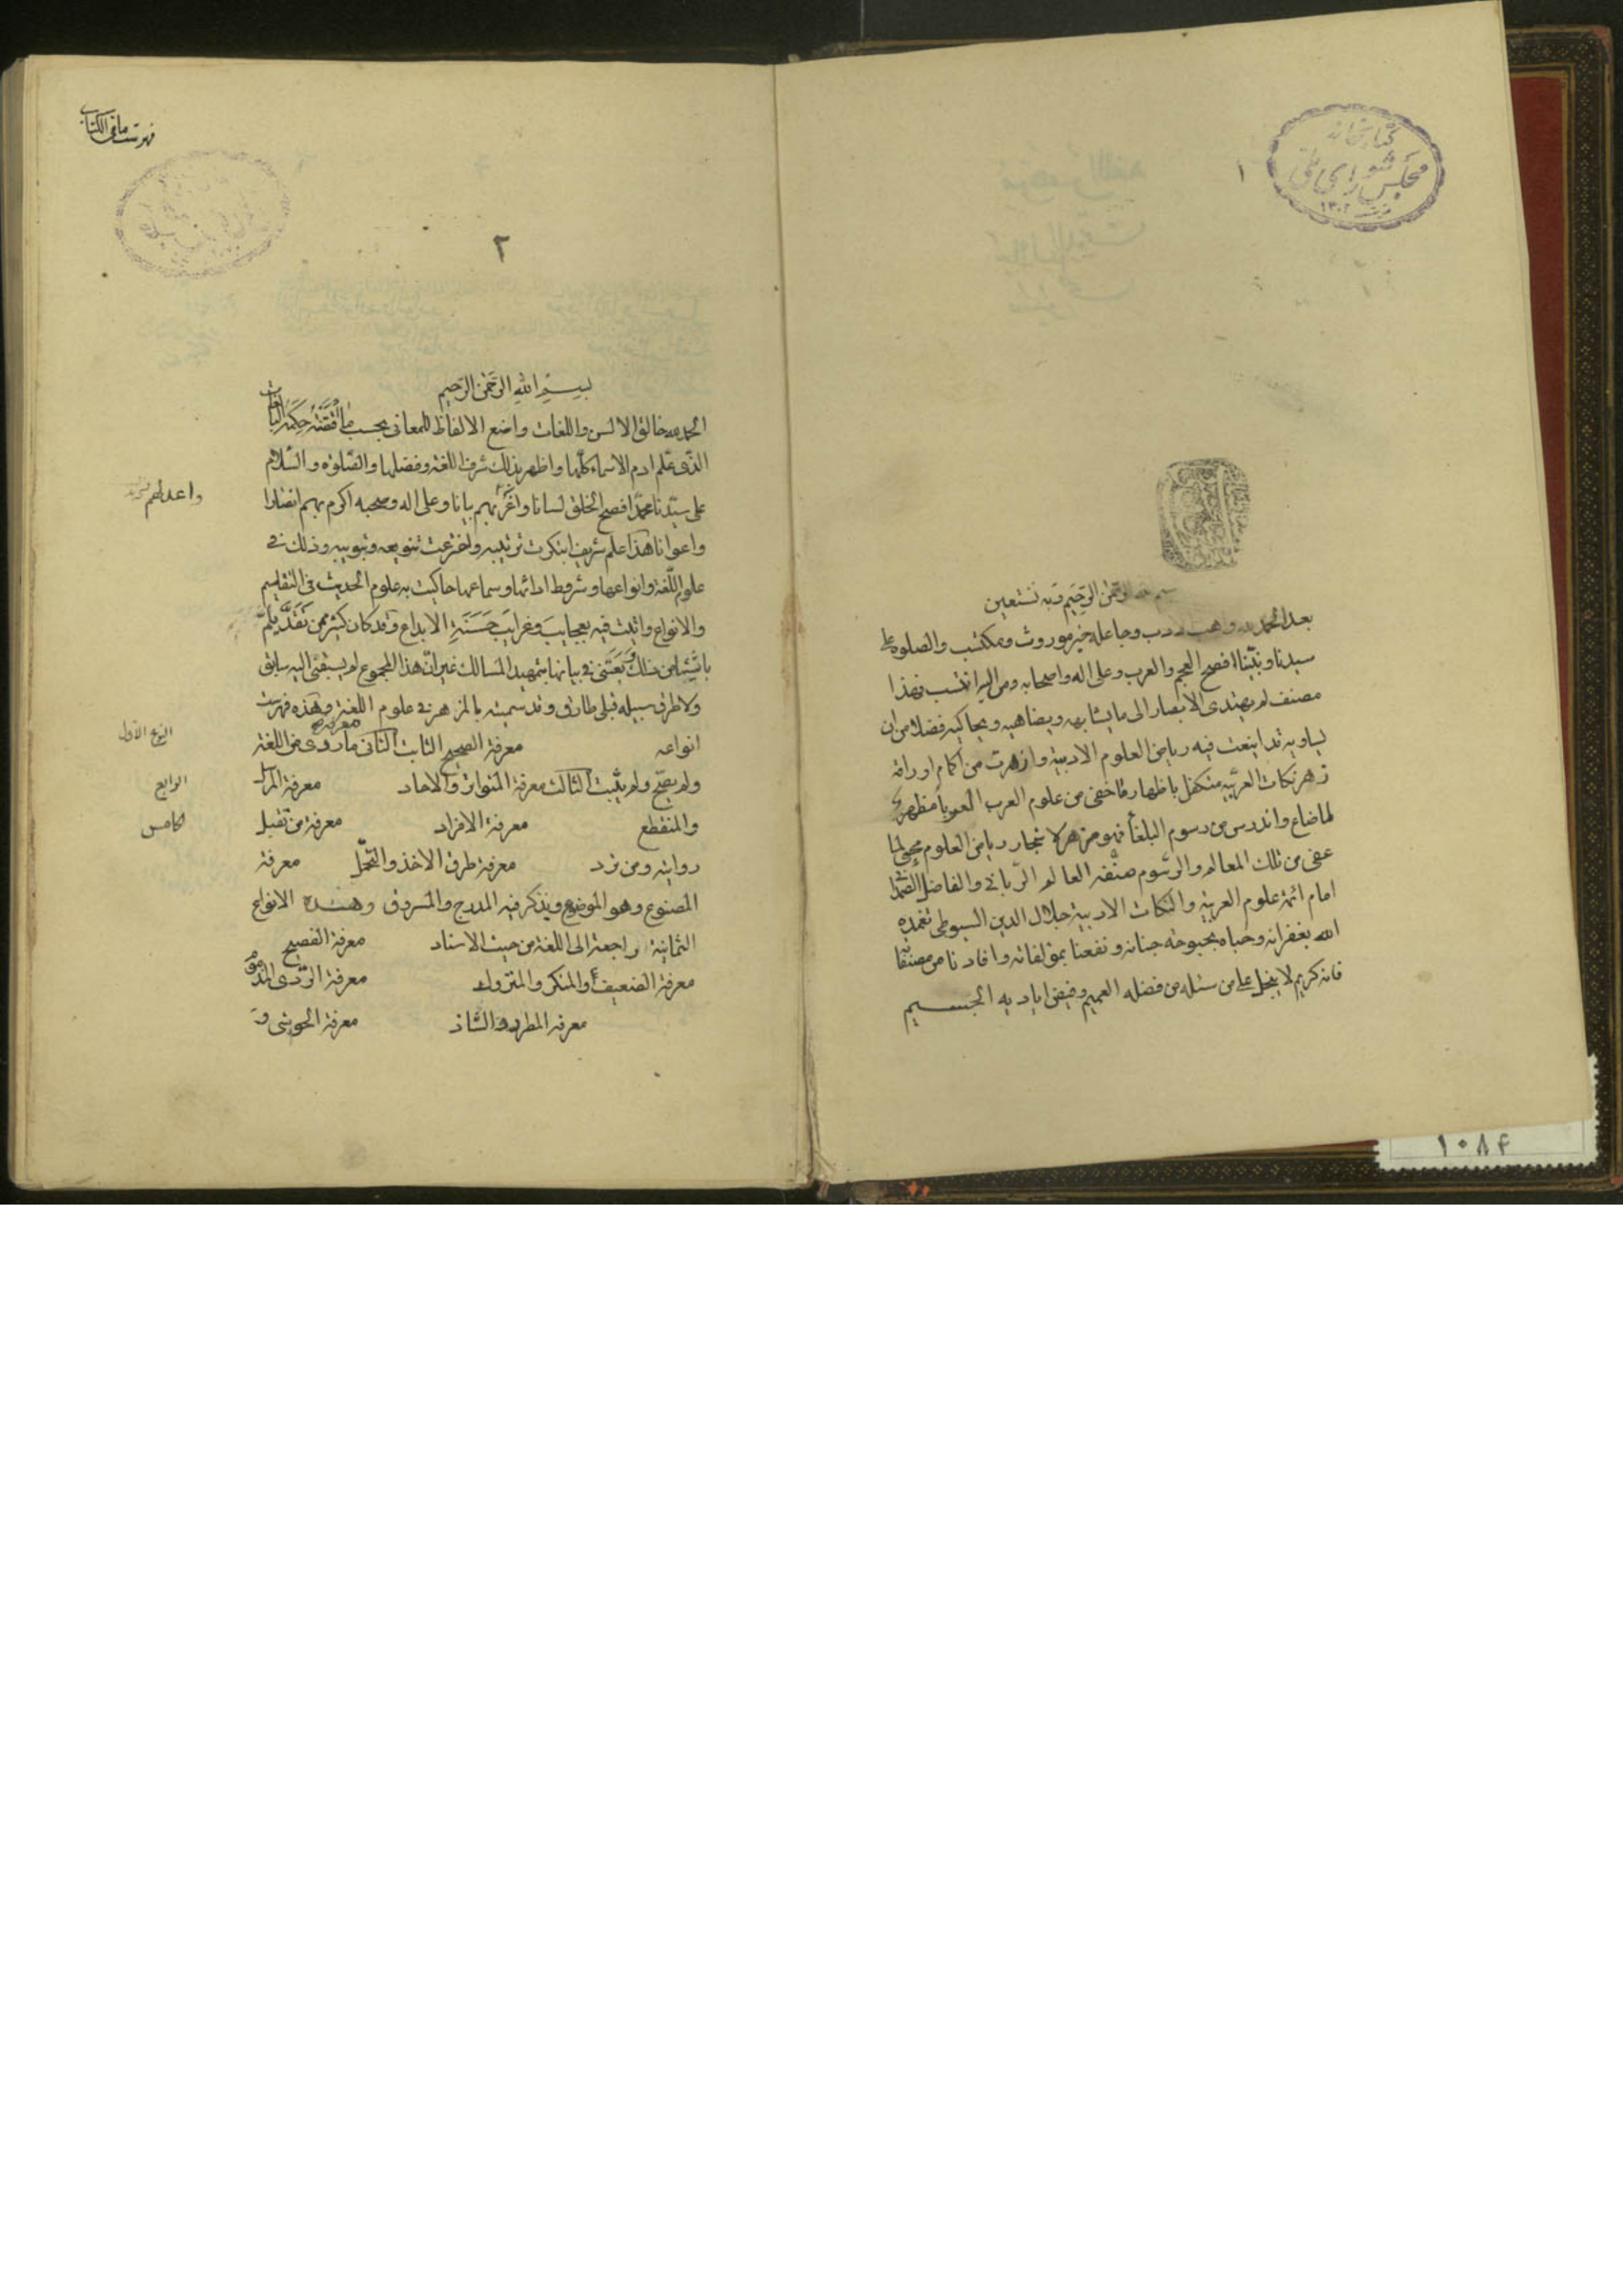 كتابخانه
مجلس شورای ملی
١٣٠٢
١
بسم الله الرحمن الرحيم وبه نستعين
بعد الحمد لله واهب الادب وجاعله خير موروث ومكتسب والصلوة على
سيدنا ونبيّنا افصح العجم والعرب وعلى اله واصحابه ومن اليه انتسب فهذا
مصنف لم يهتدى الابصار الى ما يشابهه ويضاهيه ويحاكيه فضلا من ان
يساويه قد اينعت فيه رياض العلوم الادبية وازهرت من اكمام اوراقه
زهر نكات العربيّه متكفل باظهار ما خفى من علوم العرب العرباء مظهر
لما ضاع واندرس من رسوم البلغاء فهو مزهر لاشجار رياض العلوم محيى لما
عفى من تلك المعالم والرسوم صنّفه العالم الرّبانى والفاضل الصمدا
امام ائمة علوم العربية والنكات الادبية جلال الدين السيوطى تغمده
الله بغفرانه وحباه بحبوحة جنانه ونفعنا بمؤلفاته وافادنا من مصنفاته
فانه كريم لا يبخل على من سئله من فضله العميم وفيض اياديه الجسيم
١٠٨۴
فهرست ما فى الكتاب
٢
بسم الله الرحمن الرحيم
الحمد لله خالق الالسن واللغات واضع الالفاظ للمعانى بحسب ما اقتضته حكمه البالغات
الذى علم ادم الاسماء كلّها واظهر بذلك شرف اللغة وفضلها والصّلوة والسّلام
على سيّدنا محمّد افصح الخلق لسانا واعربهم بيانا وعلى اله وصحبه اكرم بهم انصارا
واعوانا هذا علم شريف ابتكرت ترتيبه واخترعت تنويعه وتبويبه وذلك فى
علوم اللّغة وانواعها وشروط ادائها وسماعها حاكيت به علوم الحديث فى التقاسيم
والانواع واتيت فيه بعجايب وغرايب حسنة الابداع وقد كان كثير ممن تقدّم يلمّ
باشياء من ذلك ويعتنى فى بيانها بتمهيد المسالك غير انّ هذا المجموع لم يسبقنى اليه سابق
ولا طرق سبيله قبلى طارق وقد سميته بالمزهر فى علوم اللغة وهذه فهرست
انواعه معرفة الصحيح الثابت الثانى معرفة ما روى من اللغة
النوع الاوّل
ولم يصحّ ولم يثبت الثالث معرفة المتواتر والاحاد معرفة المرسل
الرابع
والمنقطع معرفة الافراد معرفة من تقبل
الخامس
روايته ومن ترد معرفة طرق الاخذ والتحمّل معرفة
المصنوع وهو الموضوع ويذكر فيه المدرج والمسروق وهذه الانواع
الثمانية راجعة الى اللغة من حيث الاسناد معرفة الفصيح
معرفة الضعيف والمنكر والمتروك معرفة الرّدى المذموم
معرفة المطرد والشاذ معرفة الحوشى و